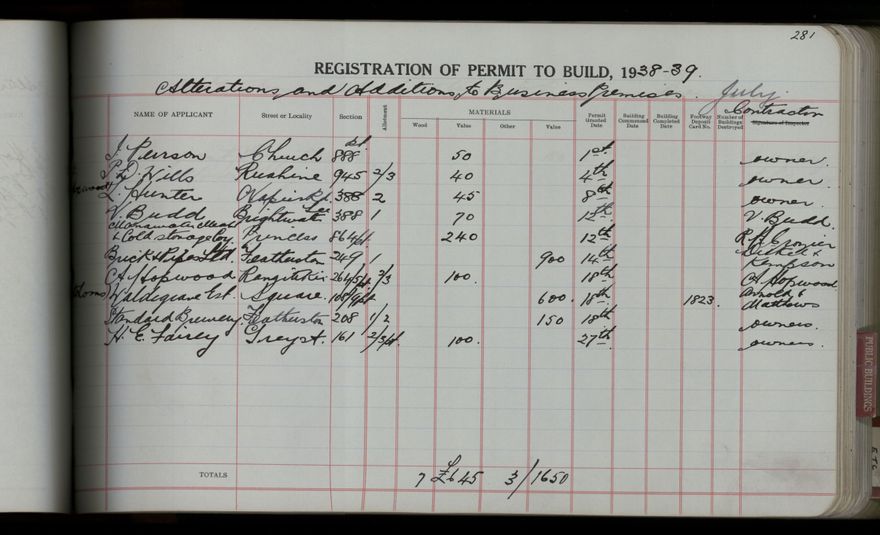 281
REGISTRATION OF PERMIT TO BUILD, 1938-39.
Alterations and Additions to Business Premises. July.
NAME OF APPLICANT Street or Locality Section Allotment MATERIALS Permit Granted Date Building Commenced Date Building Completed Date Footway Deposit Card No. Number of Buildings Destroyed Contractor Signature of Inspector
Wood Value Other Value
J. Pearson Church 888 50 1st owner.
P. D. Wills Rushine 945 2/3 40 4th owner.
L. Hunter 388 2 45 8th owner.
V. Budd Brightwater 388 1 70 12th V. Budd.
Manawatu Meat
& Cold Storage Coy. Princess 864 pt. 240 12th
Brick & Pipes Ltd. Featherston 249 1 900 14th
C A Hopwood Rangitikei 264/5 2/3 100. 18th CA Hopwood
Waldegrave Est. Square. 600. 18th 1823. Arnold & Matthews
Standard Brewery. Featherston 208 1/2 150 18th owners.
H. E. Fairey Grey st. 161 2/3 pt. 100. 27th owners.
TOTALS 7 £645 3/ 1650
PUBLIC BUILDINGS